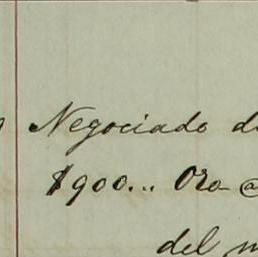 Negociado d
$900... Oro @
del m